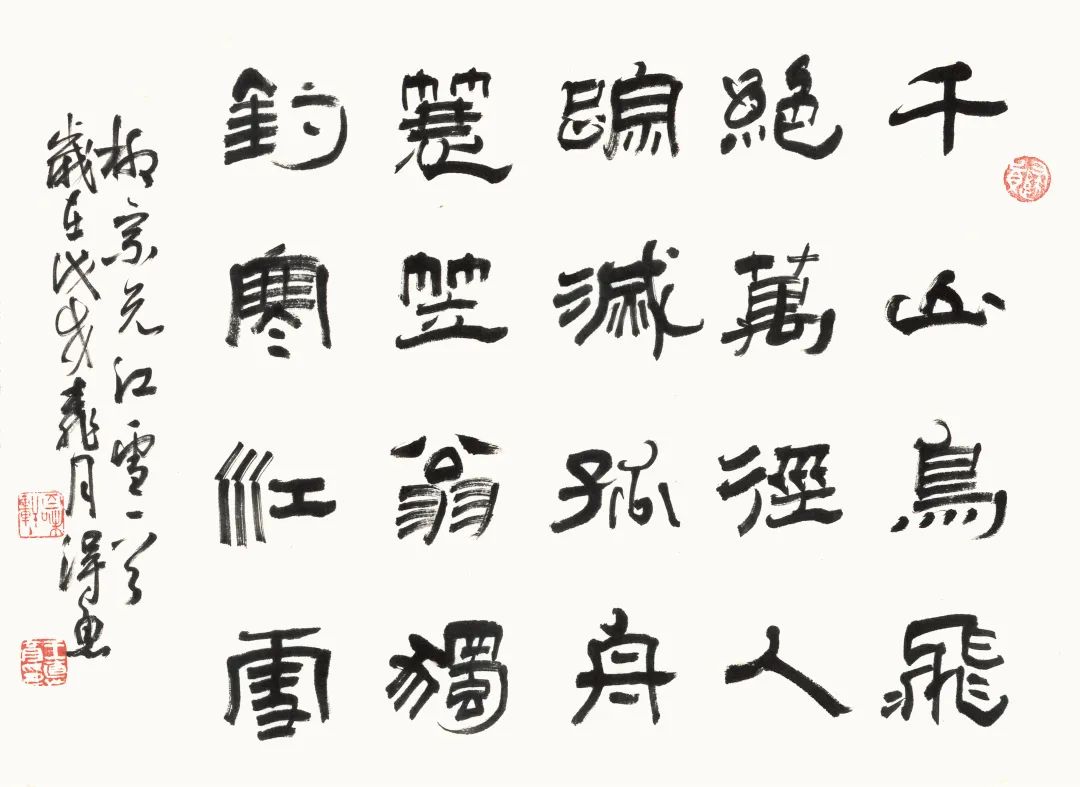 千山鳥飛
絕萬徑人
滅孤舟
簑笠翁獨
釣寒江雪
柳宗元江雪一首
歲在戊戌月